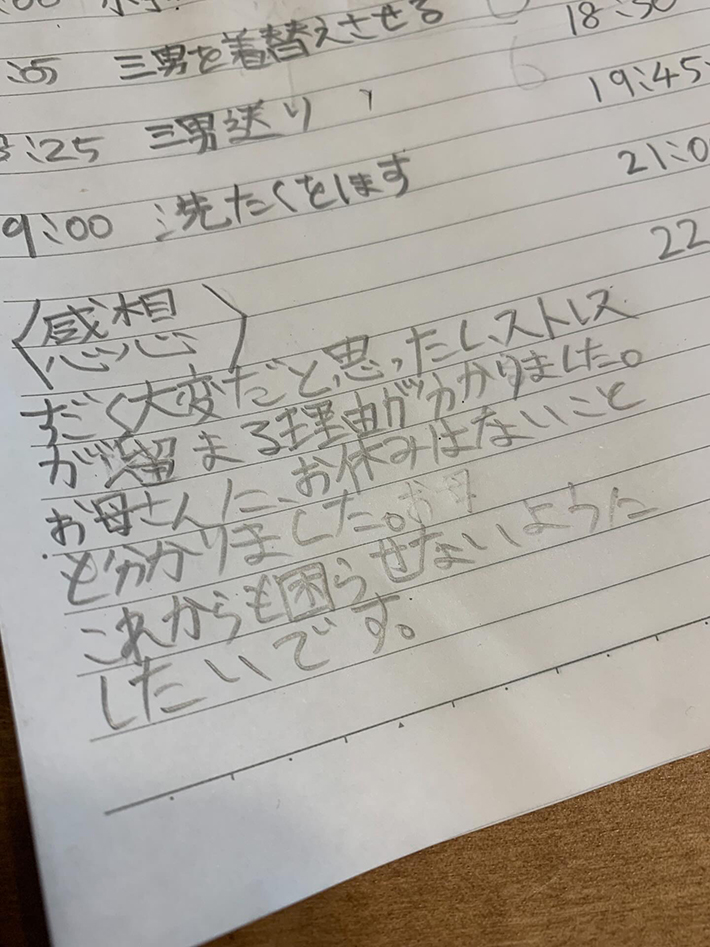 :05 三男を着替えさせる
18:30
8:25 三男送り
19:45
9:00 洗たくをします
21:0
22
〈感想〉
すごく大変だと思ったし、ストレス
が溜まる理由が分かりました。
お母さんに、お休みはないこと
も分かりました。お母
これからも困らせないように
したいです。